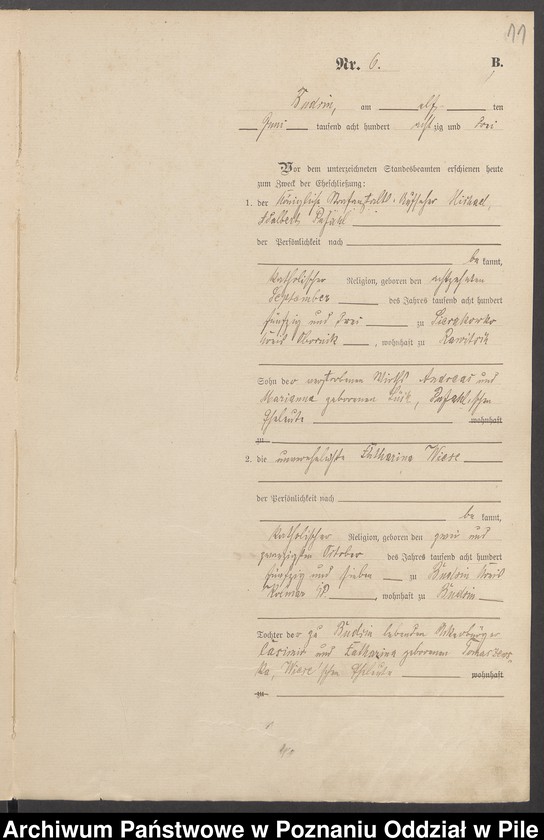 11
Nr. 6. B.
Budsin, am elf ten
Juni tausend acht hundert achtzig und drei
Vor dem unterzeichneten Standesbeamten erschienen heute
zum Zweck der Eheschließung:
1. der Königliche Strafanstalts-Aufseher Michael
der Persönlichkeit nach
bekannt,
katholischer Religion, geboren den achtzehnten
September des Jahres tausend acht hundert
fünfzig und zwei zu
Kreis Obornik, wohnhaft zu Rawitsch
Sohn der verstorbenen Wirth Andreas und
Marianna geborenen
Eheleute wohnhaft
zu
2. die unverehelichte Katharina Wiese
der Persönlichkeit nach
bekannt,
katholischer Religion, geboren den zwei und
zwanzigsten October des Jahres tausend acht hundert
fünfzig und sieben zu Budsin Kreis
Kolmar i/P., wohnhaft zu Budsin
Tochter der zu Budsin lebenden Ackerbürger
Casimir und Katharina geborenen
Wiese'schen Eheleute wohnhaft
zu
Archiwum Państwowe w Poznaniu Oddział w Pile